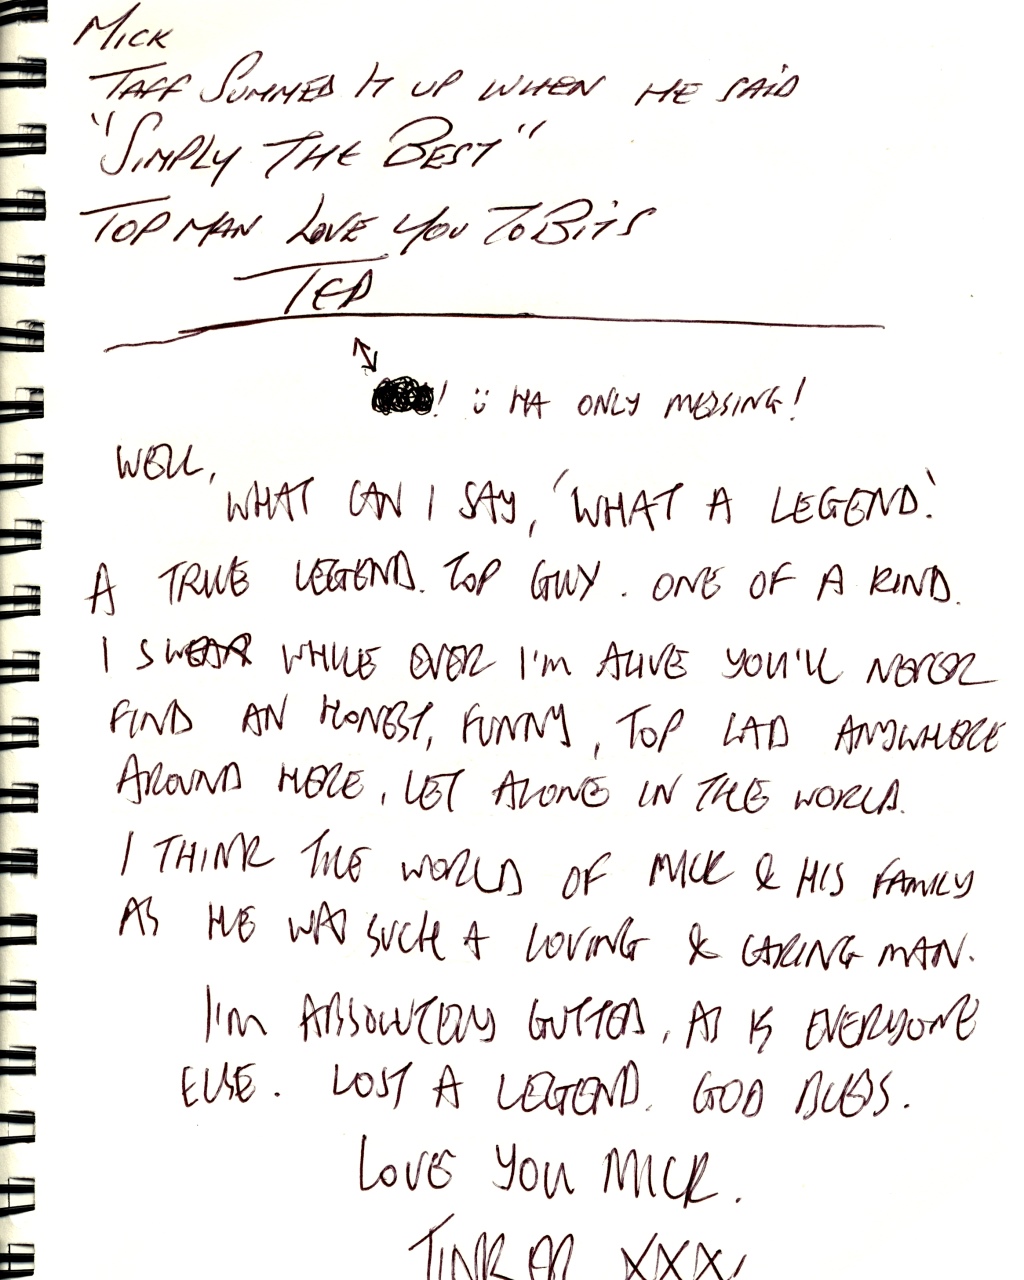 MICK
TAFF SUMMED IT UP WHEN HE SAID
"SIMPLY THE BEST"
TOP MAN LOVE YOU TO BITS
TED
! Ü HA ONLY MESSING!
WELL,
WHAT CAN I SAY, 'WHAT A LEGEND.'
A TRUE LEGEND. TOP GUY. ONE OF A KIND.
I SWEAR WHILE EVER I'M ALIVE YOU'LL NEVER
FIND AN HONEST, FUNNY, TOP LAD ANYWHERE
AROUND HERE, LET ALONE IN THE WORLD.
I THINK THE WORLD OF MICK & HIS FAMILY
AS HE WAS SUCH A LOVING & CARING MAN.
I'M ABSOLUTELY GUTTED, AS IS EVERYONE
ELSE. LOST A LEGEND. GOD BLESS.
LOVE YOU MICK.
TINKER XXX